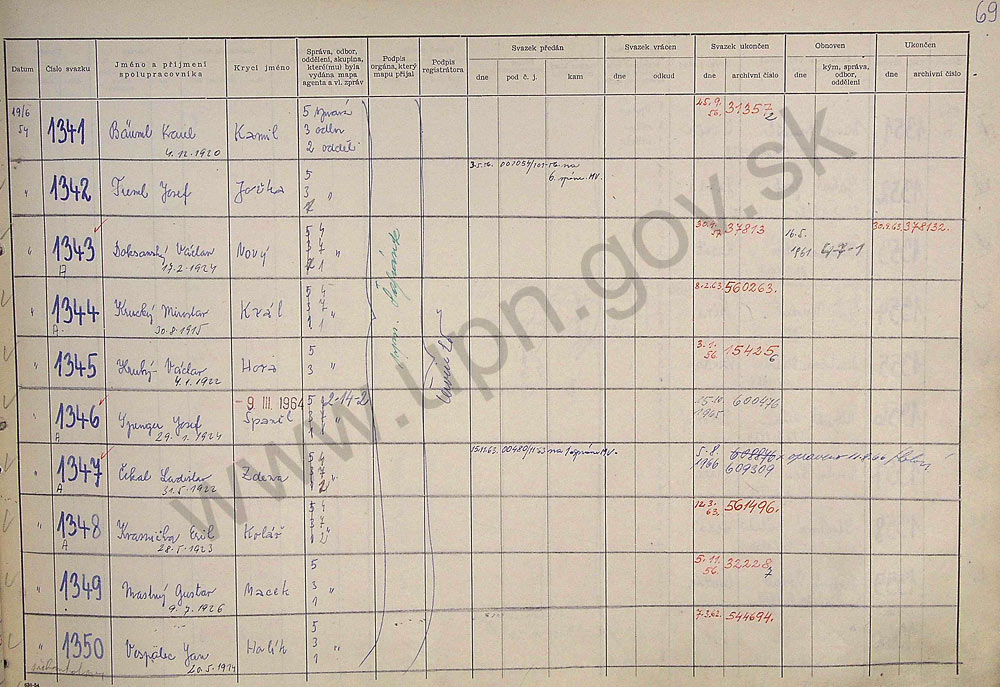 69
Datum
Číslo svazku
Jméno a příjmení spolupracovníka
Krycí jméno
Správa, odbor, oddělení, skupina, které(mu) byla vydána mapa agenta a vl. zpráv
Podpis orgána, který mapu přijal
Podpis registrátora
Svazek předán
dne pod č. j. kam
Svazek vrácen
dne odkud
Svazek ukončen
dne archivní číslo
Obnoven
dne kým, správa, odbor, oddělení
Ukončen
dne archivní číslo
19/6 54 1341 Bäuml Karel Kamil 5 správa 25.9. 56. 31357
4.12.1920 3 odbor 2
2 odděl.
" 1342 Treml Josef Jožka 5 3.5.56.
3 " 6. správu MV.
2
" 1343 Doksanský Václav Nový 5 4 30.9. 57 37813 16.5. 1961 4-7-1 30.9.63. 378132.
A 17.2.1924
" 1344 Krucký Miroslav Král 5 4 8.2.63. 560263.
A. 30.8.1915
" 1345 Hrubý Václav Hora 5 3.1. 56. 15425
4.1.1922 3 " 6
" 1346 Josef - 9. III. 1964 5 2-14-2 25-10- 1965 600476
A 29.1.1924 Španěl
" 1347 Čekal Ladislav Zdena 5 4 15.11.63. 5.8. 1966 609309
A 31.5.1922
" 1348 Krasnička Emil Kolář 5 4 12.3. 63. 561496.
A 28.5.1923
" 1349 Mastný Gustav Macek 5 5.11. 56. 32228
9.7.1926 3 " 7
1
" 1350 Vospálec Jan Halík 5 7.3.62. 544694.
20.5.1924 3 "
1
www.upn.gov.sk